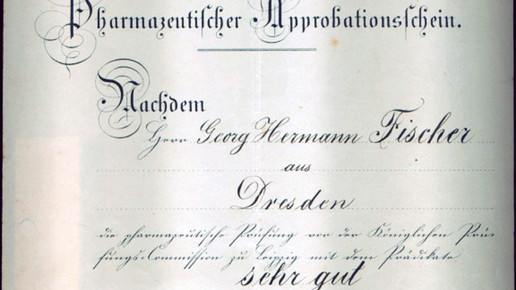 Pharmazeutischer Approbationsschein.
Nachdem
Herr Georg Hermann Fischer
aus
Dresden
die pharmazeutische Prüfung vor der Königlichen Prü-
fungs-Commission zu Leipzig mit dem Prädikate
sehr gut